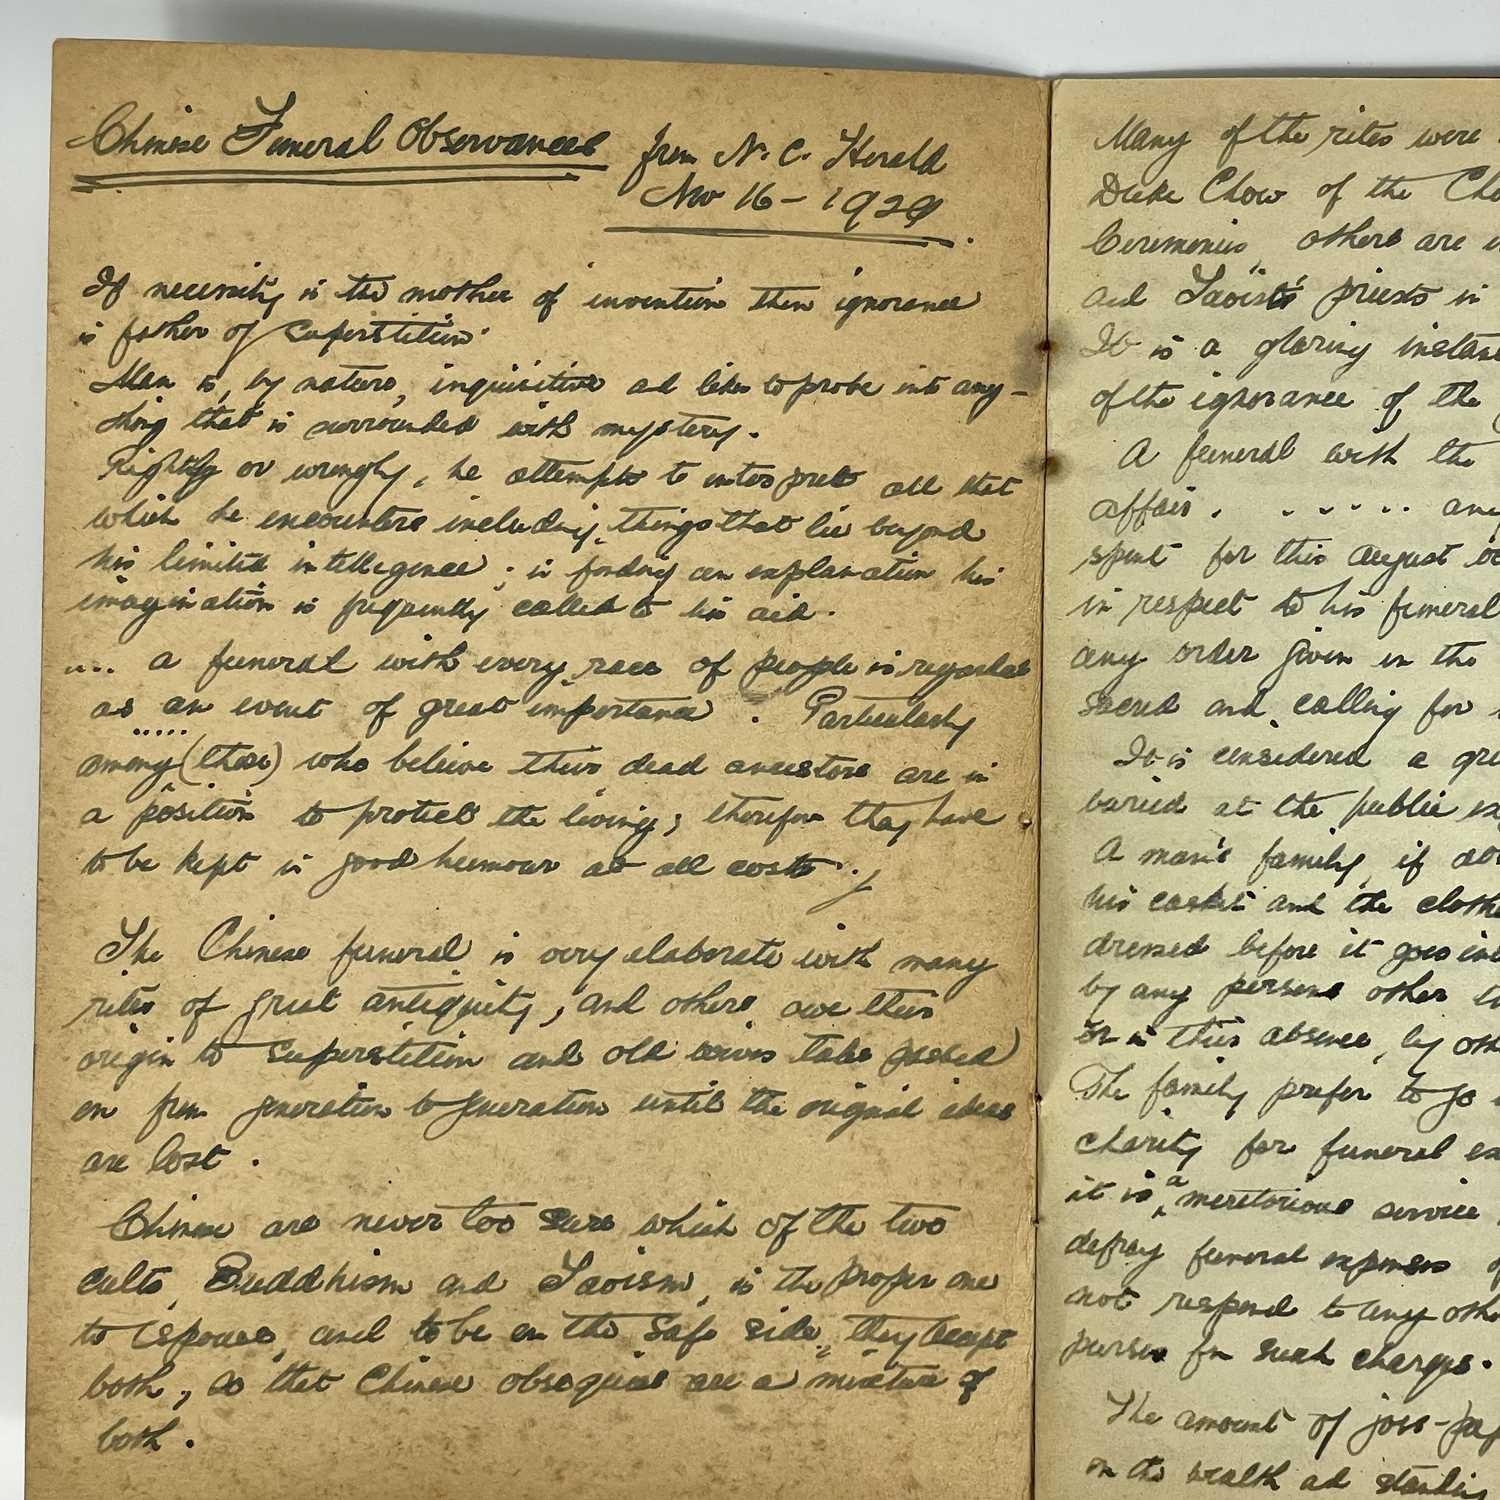 Chinese Funeral Observances from N. C. Herald
Nov 16 - 1929.
If necessity is the mother of invention then ignorance
is father of superstition.
Man is, by nature, inquisitive ad likes to probe into any-
thing that is surrounded with mystery.
Rightly or wrongly, he attempts to interpret all that
which he encounters including things that lie beyond
his limited intelligence; in finding an explanation his
imagination is frequently called to his aid.
... a funeral with every race of people is regarded
as an event of great importance. Particularly
.....
among (those) who beleive their dead ancestors are in
a position to protect the living; therefore they have
to be kept in good humour at all costs.
The Chinese funeral is very elaborate with many
rites of great antiquity, and others owe their
origin to superstition and old wives tales passed
on from generation to generation until the original ideas
are lost.
Chinese are never too sure which of the two
cults, Buddhism and Taoism, is the proper one
to espouse, and to be on the safe side, they accept
both, so that Chinese obsequies are a mixture of
both.
Many of the rites were
Duke Chow of the
Ceremonies, others are
ad Taoists priests in
It is a glaring
of the ignorance of the
A funeral with the
affair. ......
spent for this august
in respect to his funeral
any order given in the
sacred and calling for
It is considered a
buried at the public
A man's family, if
his casket and the
dressed before it goes
by any persons other
or in their absence, by
The family prefer to go
charity for funeral
it is a meretorious service
defray funeral expenses
not respond to any
person for such charges.
The amount of joss-
on the wealth ad